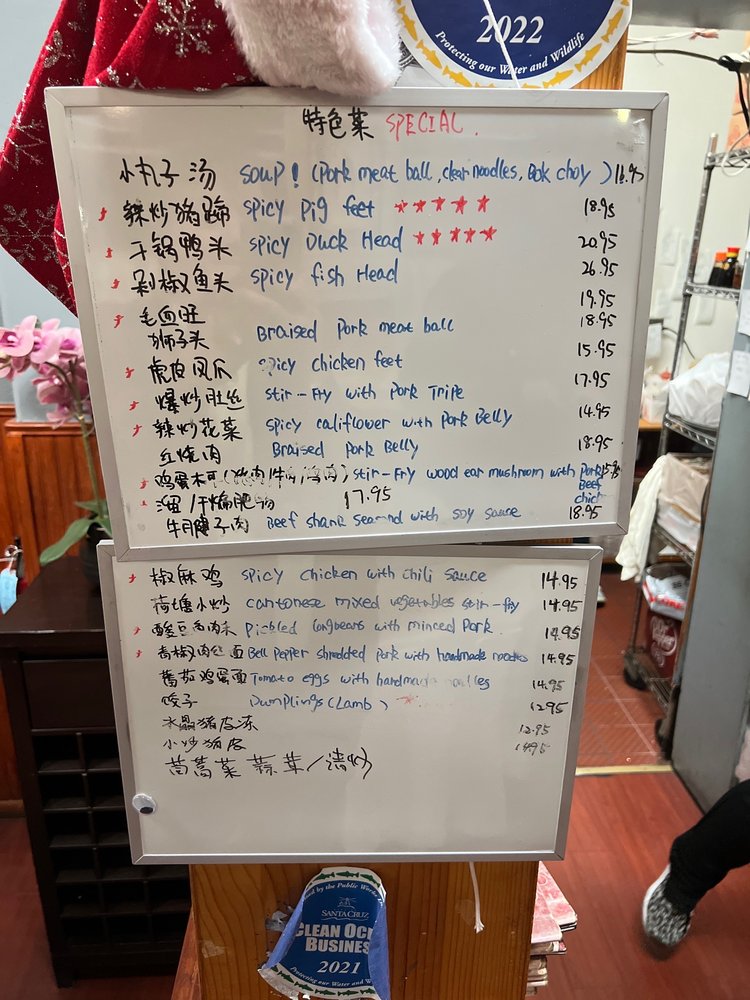 2022
Protecting our Water and Wildlife
特色菜 SPECIAL.
小丸子汤 soup! (Pork meat ball, clear noodles, Bok choy) 16.95
辣炒猪蹄 spicy pig feet ★★★★★ 18.95
干锅鸭头 spicy Duck Head ★★★★★ 20.95
剁椒鱼头 spicy fish Head 26.95
毛血旺 19.95
狮子头 Braised Pork meat ball 18.95
虎皮凤爪 spicy chicken feet 15.95
爆炒肚丝 stir-Fry with Pork Tripe 17.95
辣炒花菜 spicy califlower with Pork Belly 14.95
红烧肉 Braised Pork Belly 18.95
鸡蛋木耳(猪肉/牛肉/鸡肉) stir-Fry wood ear mushroom with Pork
Beef
溜/干煸肥肠 17.95
牛腱子肉 Beef shank seasond with soy sauce 18.95
椒麻鸡 spicy chicken with chili sauce 14.95
荷塘小炒 cantonese mixed vegetables stir-fry 14.95
酸豆角肉末 Pickled longbeans with minced Pork. 14.95
青椒肉丝面 Bell Pepper shredded pork with handmade noodles 14.95
蕃茄鸡蛋面 Tomato eggs with handmade noodles 14.95
饺子 Dumplings (Lamb) 12.95
水晶猪皮冻 12.95
小炒猪皮 14.95
茼蒿菜 蒜 /清炒
by the Public Works
SANTA CRUZ
CLEAN OC
BUSINES
2021
Protecting our Water and